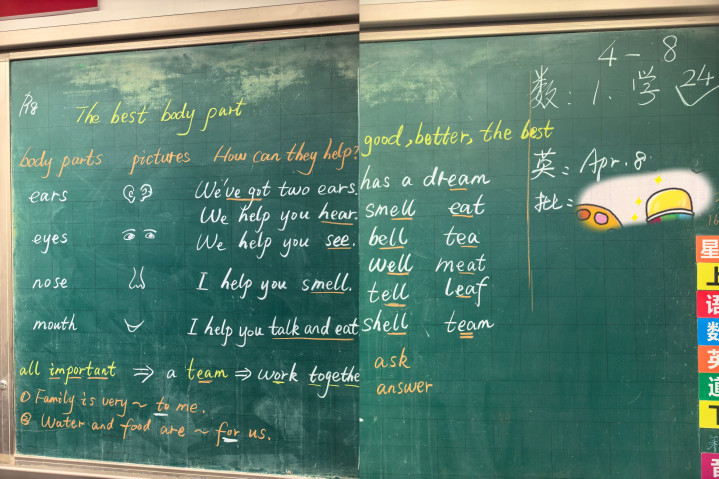 R8
The best body part
body parts pictures How can they help?
ears We've got two ears.
We help you hear.
eyes We help you see.
nose I help you smell.
mouth I help you talk and eat
all important ⇒ a team ⇒ work togethe
① Family is very ~ to me.
② Water and food are ~ for us.
good, better, the best
has a dream
smell eat
bell tea
well meat
tell leaf
shell team
ask
answer
4-8
数: 1. 学 24
英: Apr. 8
批:
星
上
语
数
英
道
下
音